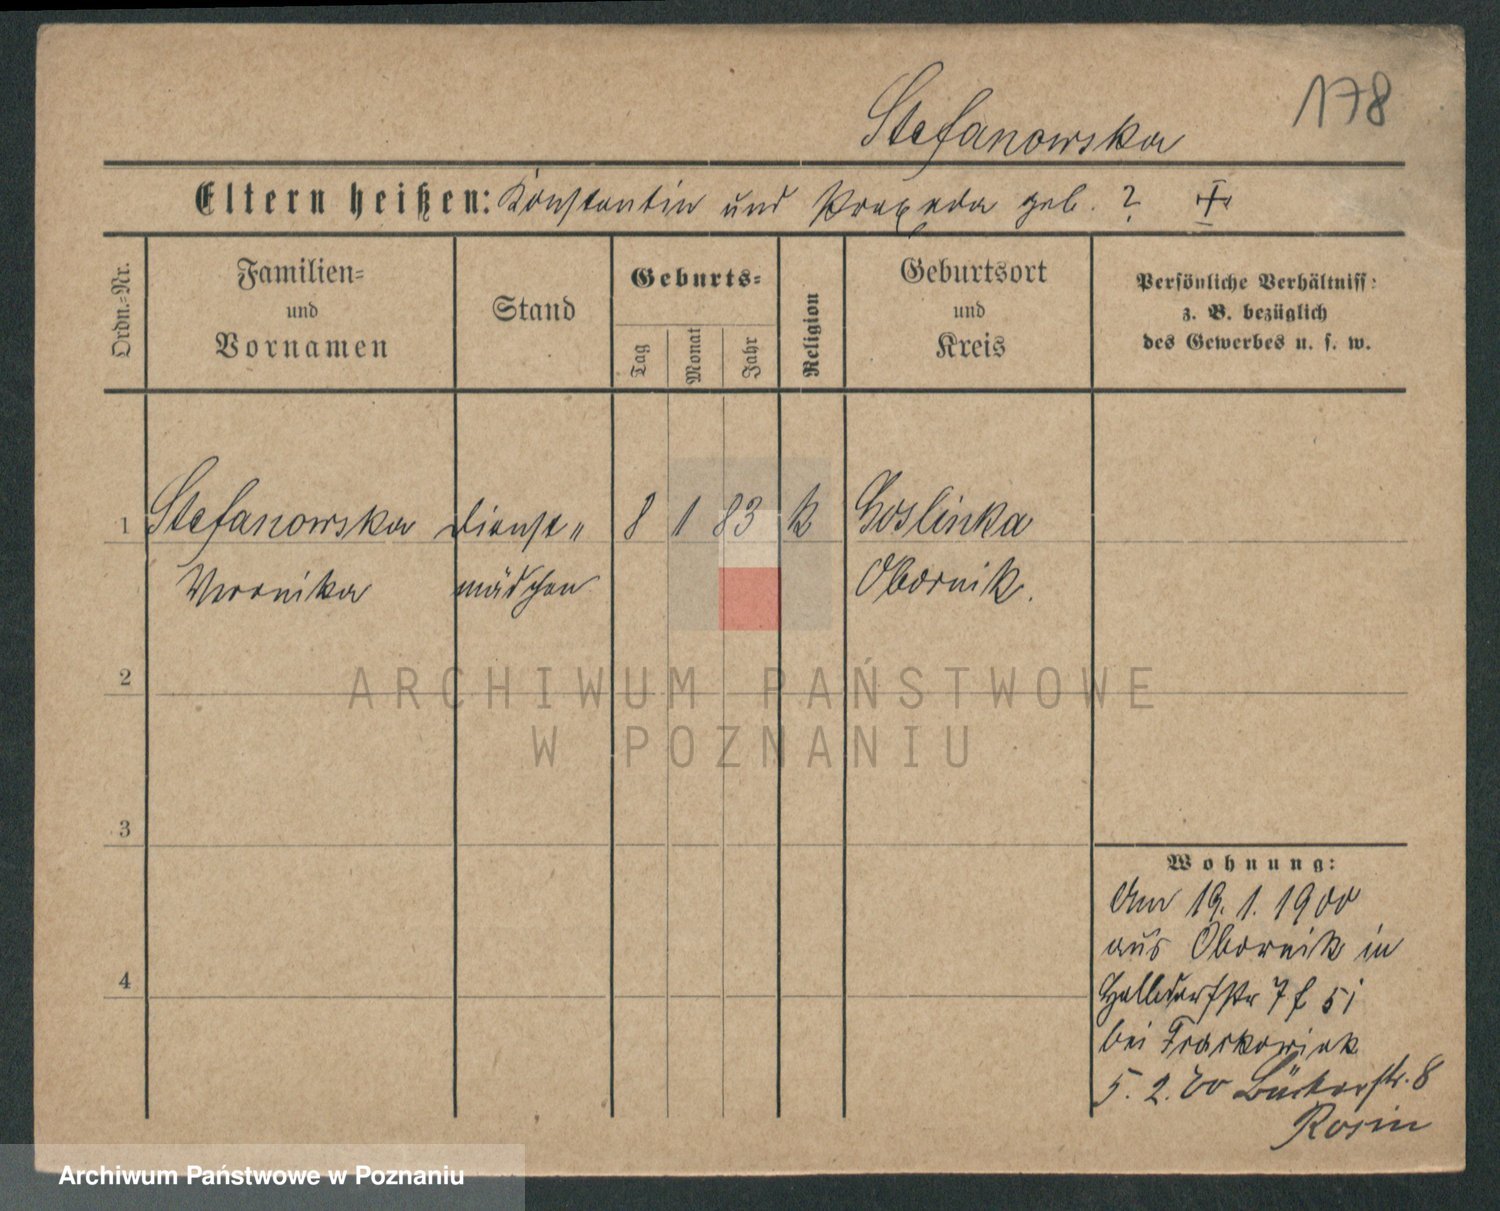 178
Stefanowska
Eltern heißen: Konstantin und Praxeda geb. ?
Ordn.-Nr.
Familien-
und
Vornamen
Stand
Geburts-
Tag
Monat
Jahr
Religion
Geburtsort
und
Kreis
Persönliche Verhältniss:
z. B. bezüglich
des Gewerbes u. s. w.
1 Stefanowska Dienst" 8 1 83 k Goslinka
Veronika mädchen Obornik.
2
3
4
Wohnung:
Am 19. 1. 1900
aus Obornik in
7
bei
5. 2. 00 8
Rosin
ARCHIWUM PAŃSTWOWE
W POZNANIU
Archiwum Państwowe w Poznaniu